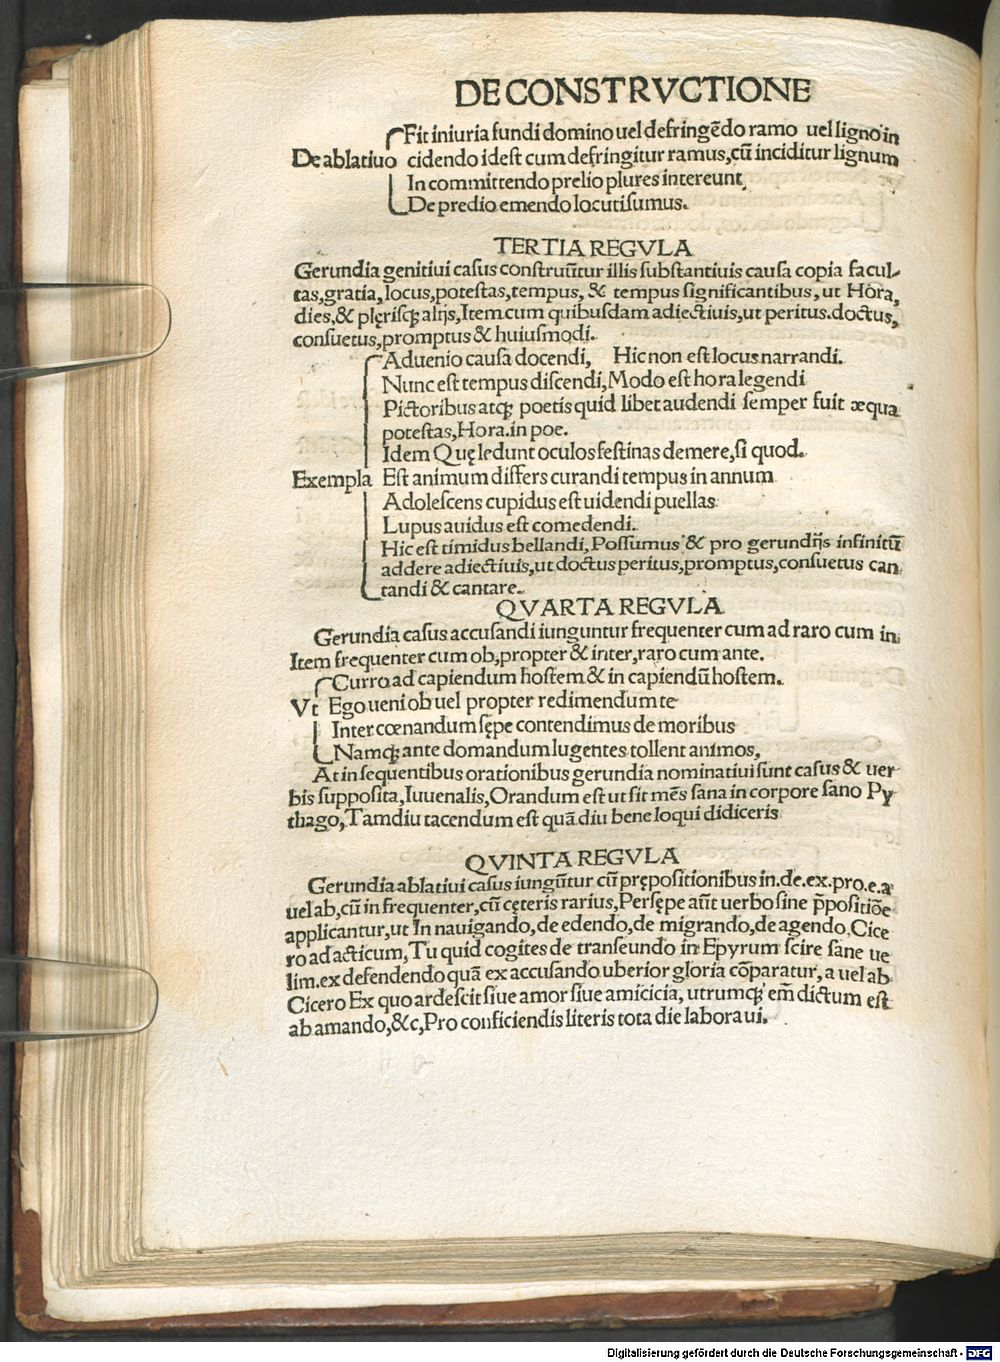 DE CONSTRVCTIONE
Fit iniuria fundi domino uel defringēdo ramo uel ligno in
De ablatiuo cidendo idest cum defringitur ramus, cū inciditur lignum
In committendo prelio plures intereunt
De predio emendo locuti sumus.
TERTIA REGVLA
Gerundia genitiui casus construūtur illis substantiuis causa copia facul-
tas, gratia, locus, potestas, tempus, & tempus significantibus, ut Hora,
dies, & plęrisqꝫ alijs, Item cum quibusdam adiectiuis, ut peritus. doctus,
consuetus, promptus & huiusmodi.
Aduenio causa docendi, Hic non est locus narrandi.
Nunc est tempus discendi, Modo est hora legendi
Pictoribus atqꝫ poetis quid libet audendi semper fuit æqua
potestas, Hora. in poe.
Idem Quę ledunt oculos festinas demere, si quod.
Exempla Est animum differs curandi tempus in annum
Adolescens cupidus est uidendi puellas
Lupus auidus est comedendi.
Hic est timidus bellandi, Possumus & pro gerundijs infinitū
addere adiectiuis, ut doctus peritus, promptus, consuetus can
tandi & cantare.
QVARTA REGVLA
Gerundia casus accusandi iunguntur frequenter cum ad raro cum in
Item frequenter cum ob, propter & inter, raro cum ante.
Curro ad capiendum hostem & in capiendū hostem.
Vt Ego ueni ob uel propter redimendum te
Inter cœnandum sępe contendimus de moribus
Namqꝫ ante domandum lugentes tollent animos,
At in sequentibus orationibus gerundia nominatiui sunt casus & uer
bis supposita, Iuuenalis, Orandum est ut sit mēs sana in corpore sano Py
thago, Tamdiu tacendum est quā diu bene loqui didiceris
QVINTA REGVLA
Gerundia ablatiui casus iungūtur cū prępositionibus in. de. ex. pro. e. a
uel ab, cū in frequenter, cū cęteris rarius, Persępe aūt uerbo sine p̄positiōe
applicantur, ut In nauigando, de edendo, de migrando, de agendo, Cice
ro ad acticum, Tu quid cogites de transeundo in Epyrum scire sane ue
lim. ex defendendo quā ex accusando uberior gloria cōparatur, a uel ab
Cicero Ex quo ardescit siue amor siue amicicia, utrumqꝫ em̄ dictum est
ab amando, &c, Pro conficiendis literis tota die laboraui.
Digitalisierung gefördert durch die Deutsche Forschungsgemeinschaft - DFG